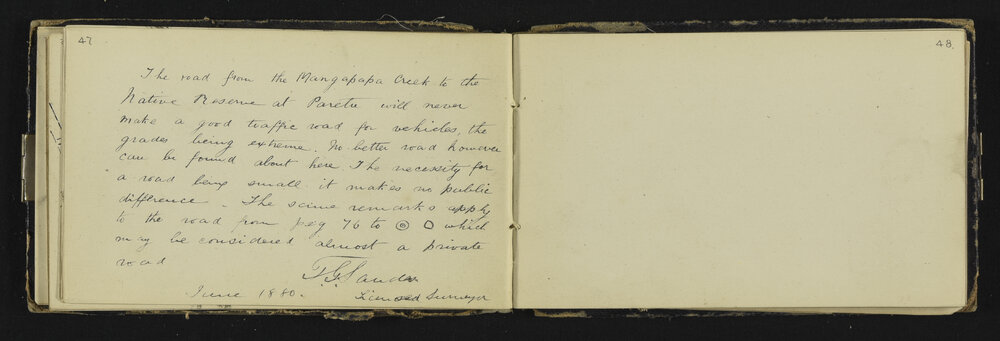 47
The road from the Mangapapa Creek to the
Native Reserve at Paretu will never
make a good traffic road for vehicles, the
grades being extreme. No better road however
can be found about here. The necessity for
a road being small it makes no public
difference - The same remarks apply
to the road from peg 76 to ◎ O which
may be considered almost a private
road
June 1880.
Licensed Surveyor
48.